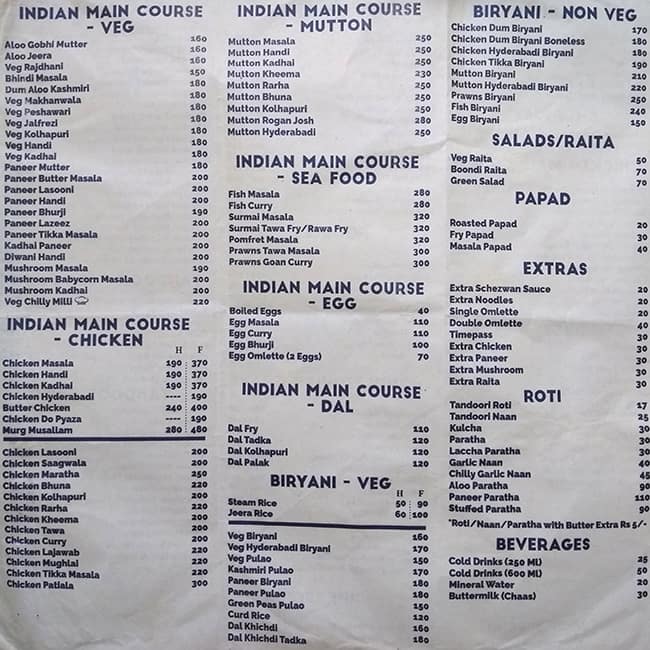 INDIAN MAIN COURSE
- VEG
Aloo Gobhi Mutter 160
Aloo Jeera 160
Veg Rajdhani 160
Bhindi Masala 150
Dum Aloo Kashmiri 180
Veg Makhanwala 180
Veg Peshawari 180
Veg Jalfrezi 180
Veg Kolhapuri 180
Veg Handi 180
Veg Kadhai 180
Paneer Mutter 180
Paneer Butter Masala 200
Paneer Lasooni 200
Paneer Handi 200
Paneer Bhurji 190
Paneer Lazeez 200
Paneer Tikka Masala 200
Kadhai Paneer 200
Diwani Handi 200
Mushroom Masala 190
Mushroom Babycorn Masala 200
Mushroom Kadhai 200
Veg Chilly Milli 220
INDIAN MAIN COURSE
- CHICKEN
H F
Chicken Masala 190 370
Chicken Handi 190 370
Chicken Kadhai 190 370
Chicken Hyderabadi ---- 190
Butter Chicken 240 400
Chicken Do Pyaza ---- 190
Murg Musallam 280 480
Chicken Lasooni 200
Chicken Saagwala 200
Chicken Maratha 250
Chicken Bhuna 220
Chicken Kolhapuri 200
Chicken Rarha 220
Chicken Kheema 200
Chicken Tawa 200
Chicken Curry 200
Chicken Lajawab 220
Chicken Mughlai 220
Chicken Tikka Masala 220
Chicken Patiala 300
INDIAN MAIN COURSE
- MUTTON
Mutton Masala 250
Mutton Handi 250
Mutton Kadhai 250
Mutton Kheema 230
Mutton Rarha 250
Mutton Bhuna 250
Mutton Kolhapuri 250
Mutton Rogan Josh 280
Mutton Hyderabadi 250
INDIAN MAIN COURSE
- SEA FOOD
Fish Masala 280
Fish Curry 280
Surmai Masala 320
Surmai Tawa Fry/Rawa Fry 320
Pomfret Masala 320
Prawns Tawa Masala 300
Prawns Goan Curry 300
INDIAN MAIN COURSE
- EGG
Boiled Eggs 40
Egg Masala 110
Egg Curry 110
Egg Bhurji 100
Egg Omlette (2 Eggs) 70
INDIAN MAIN COURSE
- DAL
Dal Fry 110
Dal Tadka 120
Dal Kolhapuri 120
Dal Palak 120
BIRYANI - VEG
H F
Steam Rice 50 90
Jeera Rice 60 100
Veg Biryani 160
Veg Hyderabadi Biryani 170
Veg Pulao 150
Kashmiri Pulao 170
Paneer Biryani 180
Paneer Pulao 180
Green Peas Pulao 150
Curd Rice 120
Dal Khichdi 160
Dal Khichdi Tadka 180
BIRYANI - NON VEG
Chicken Dum Biryani 170
Chicken Dum Biryani Boneless 180
Chicken Hyderabadi Biryani 180
Chicken Tikka Biryani 190
Mutton Biryani 210
Mutton Hyderabadi Biryani 220
Prawns Biryani 250
Fish Biryani 240
Egg Biryani 150
SALADS/RAITA
Veg Raita 50
Boondi Raita 70
Green Salad 70
PAPAD
Roasted Papad 20
Fry Papad 30
Masala Papad 40
EXTRAS
Extra Schezwan Sauce 20
Extra Noodles 20
Single Omlette 20
Double Omlette 40
Timepass 20
Extra Chicken 30
Extra Paneer 30
Extra Mushroom 30
Extra Raita 30
ROTI
Tandoori Roti 17
Tandoori Naan 25
Kulcha 30
Paratha 30
Laccha Paratha 30
Garlic Naan 40
Chilly Garlic Naan 45
Aloo Paratha 90
Paneer Paratha 110
Stuffed Paratha 90
*Roti/Naan/Paratha with Butter Extra Rs 5/-
BEVERAGES
Cold Drinks (250 Ml) 25
Cold Drinks (600 Ml) 50
Mineral Water 20
Buttermilk (Chaas) 30